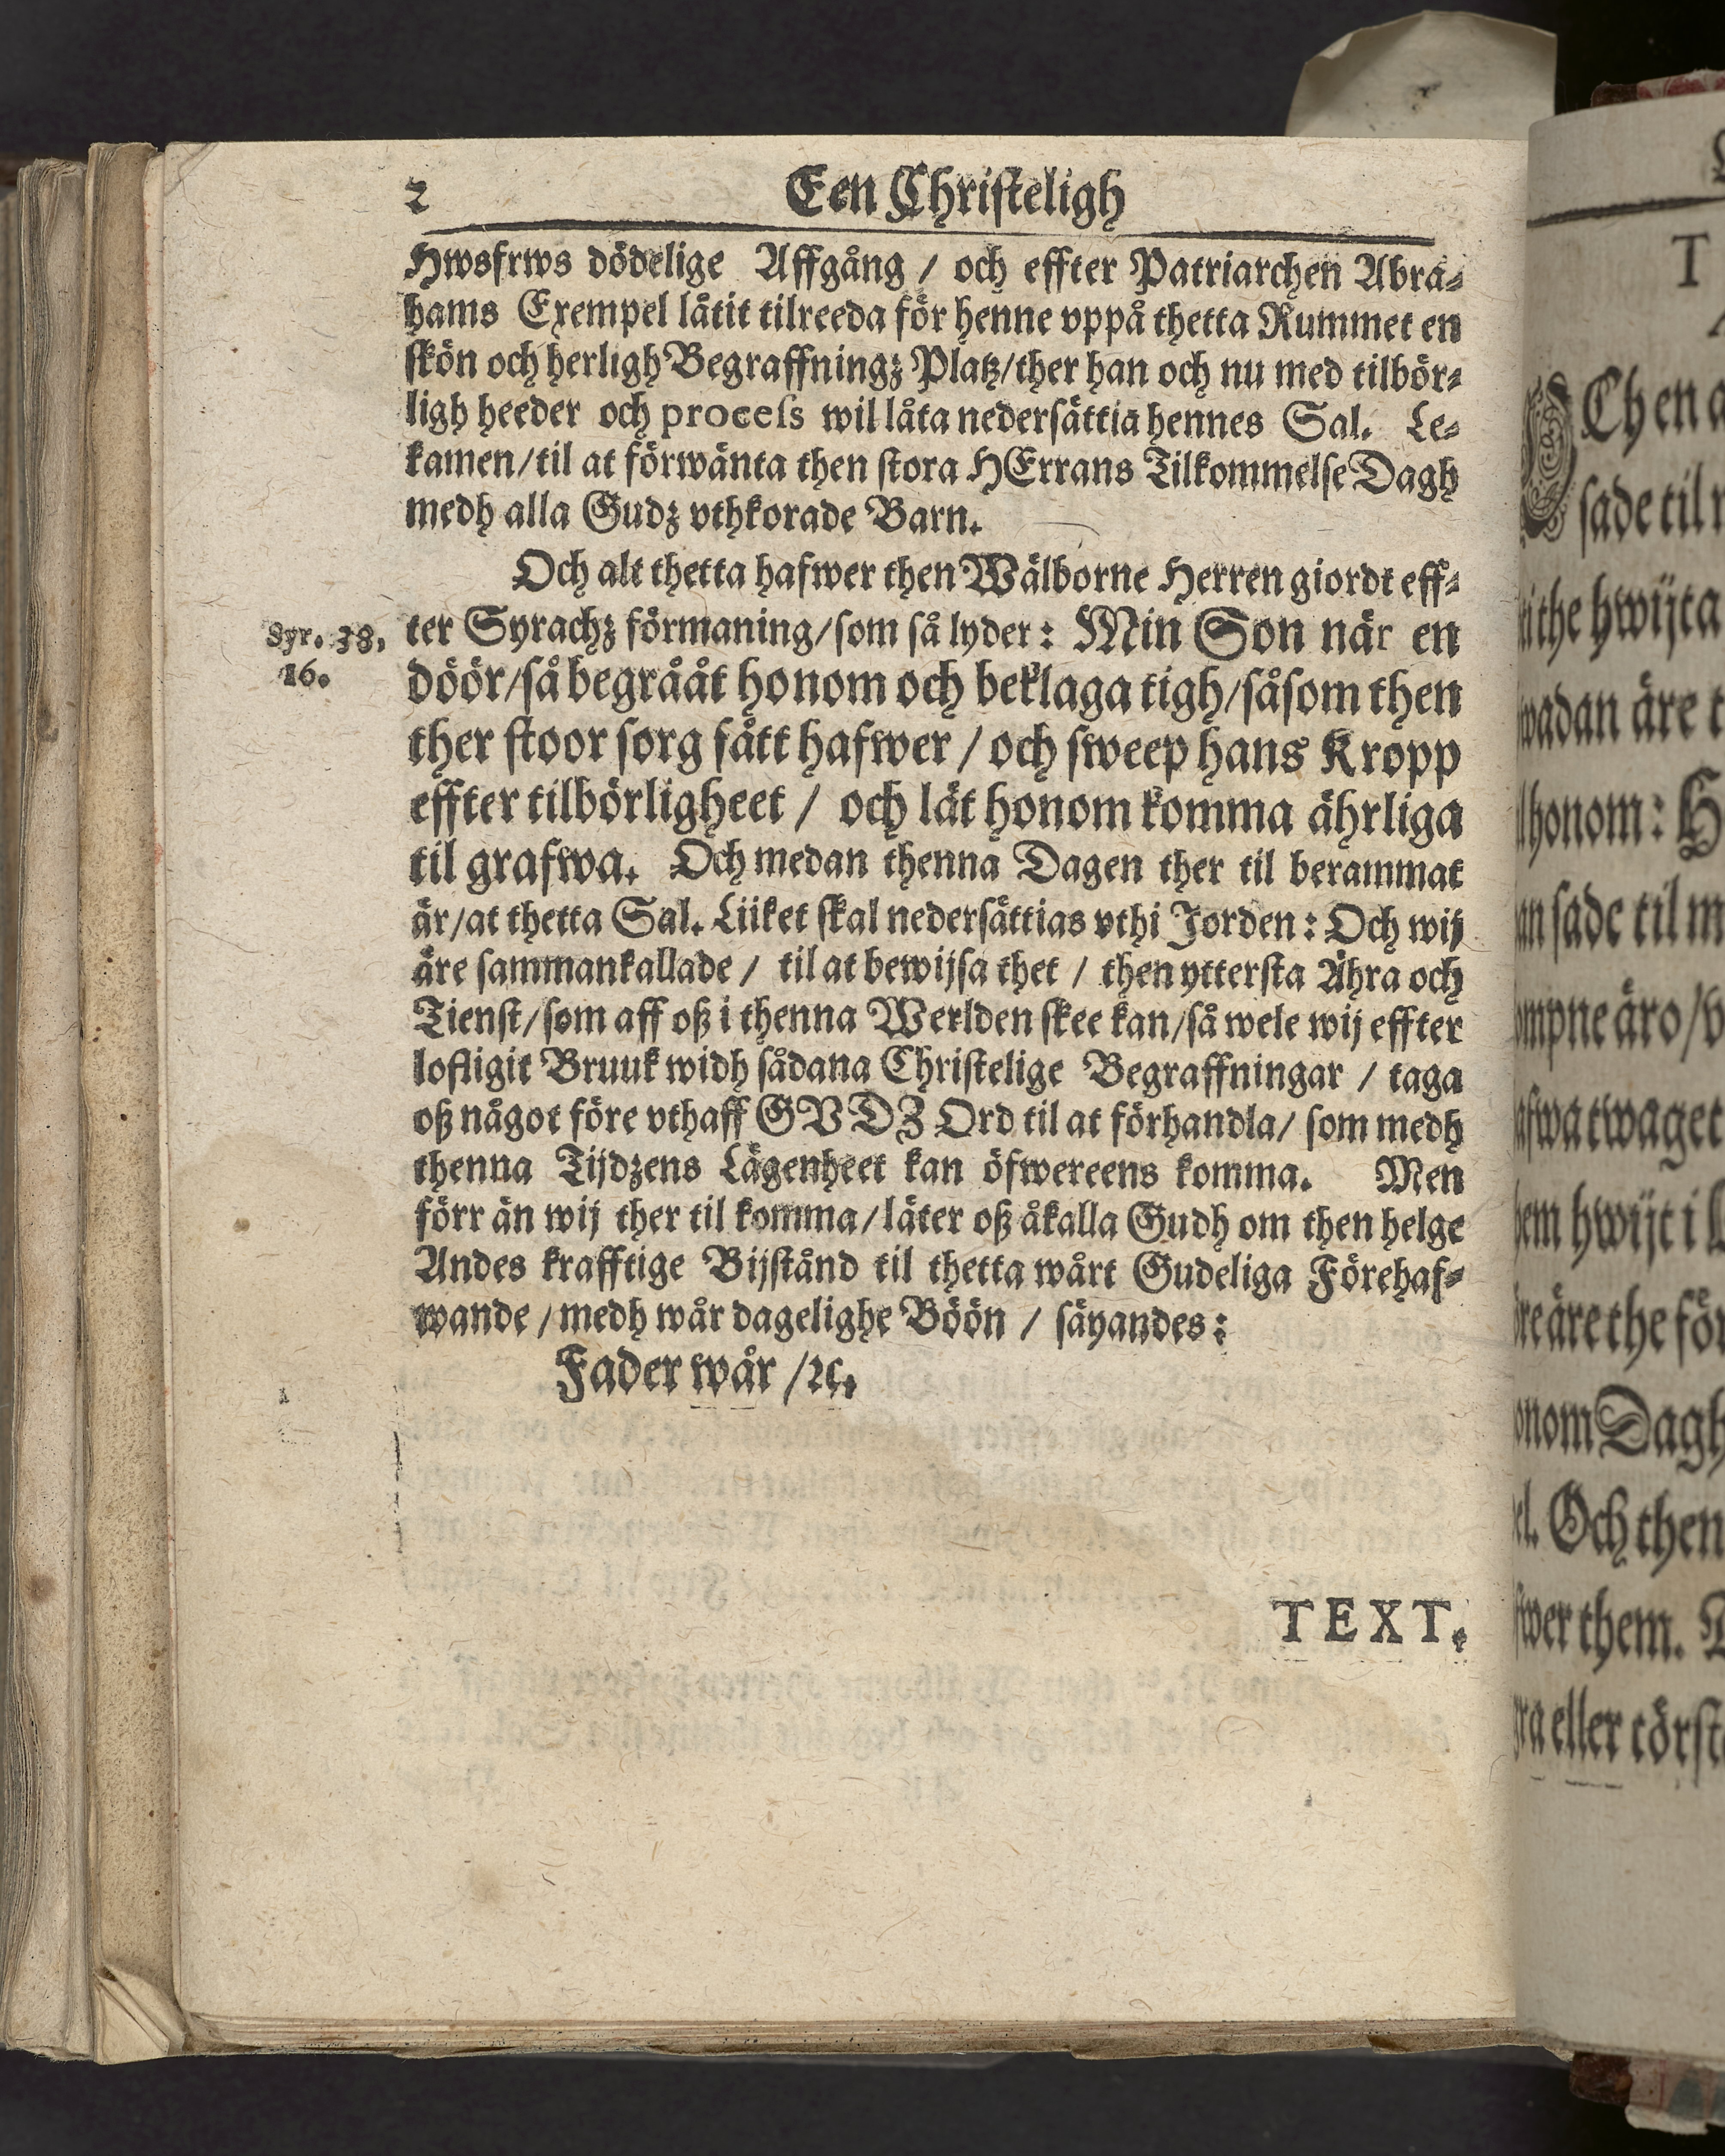 2 Een Christeligh
Hwsfrws dödelige Affgång / och effter Patriarchen Abra-
hams Exempel låtit tilreeda för henne vppå thetta Rummet en
skön och herligh Begraffningz Platz/ther han och nu med tilbör-
ligh heeder och process wil låta nedersättia hennes Sal. Le-
kamen/til at förwänta then stora HErrans Tilkommelse Dagh
medh alla Gudz vthkorade Barn.
Och alt thetta hafwer then Wälborne Herren giordt eff-
Syr. 38,
16.
ter Syrachz förmaning/som så lyder: Min Son när en
döör/så begrååt honom och beklaga tigh/såsom then
ther stoor sorg fått hafwer / och sweep hans Kropp
effter tilbörligheet / och lät honom komma ährliga
til grafwa. Och medan thenna Dagen ther til berammat
är/at thetta Sal. Liiket skal nedersättias vthi Jorden: Och wij
äre sammankallade / til at bewijsa thet / then yttersta Ähra och
Tienst/som aff oß i thenna Werlden skee kan/så wele wij effter
lofligit Bruuk widh sådana Christelige Begraffningar / taga
oß något före vthaff GVDZ Ord til at förhandla/ som medh
thenna Tijdzens Lägenheet kan öfwereens komma. Men
förr än wij ther til komma/läter oß åkalla Gudh om then helge
Andes krafftige Bijstånd til thetta wårt Gudeliga Förehaf-
wande/medh wår dagelighe Böön / säyandes:
Fader wår /ꝛc.
TEXT.
T
Ch en
sade til
the hwijta
äre
honom:
sade til
äro/
twaget
hwijt i
äre the
Dagh
Och then
them.
eller